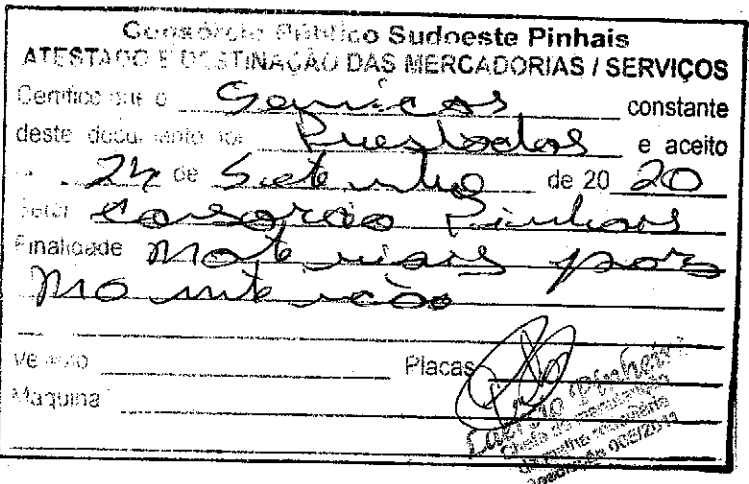 Consórcio Público Sudoeste Pinhais
ATESTADO E DESTINAÇÃO DAS MERCADORIAS / SERVIÇOS
Certifico que o Serviços constante
deste documento foi Prestados e aceito
24 de Setembro de 20 20
Setor Consorcio Pinhais
Finalidade Materiais para
Manutenção
Veículo Placas
Maquina
Pinheiro
Chefe de manutenção
da malha rodoviária